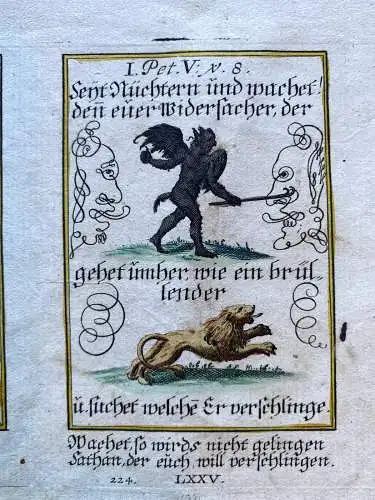 I. Pet. V. v. 8.
Seyt Nüchtern und wachet!
deñ eüer Widersacher, der
gehet ümher, wie ein brül
lender
ü. sůchet welchē Er verschlinge.
Wachet, so wirds nicht gelingen
Sathan, der euch will verschlingen.
224. LXXV.